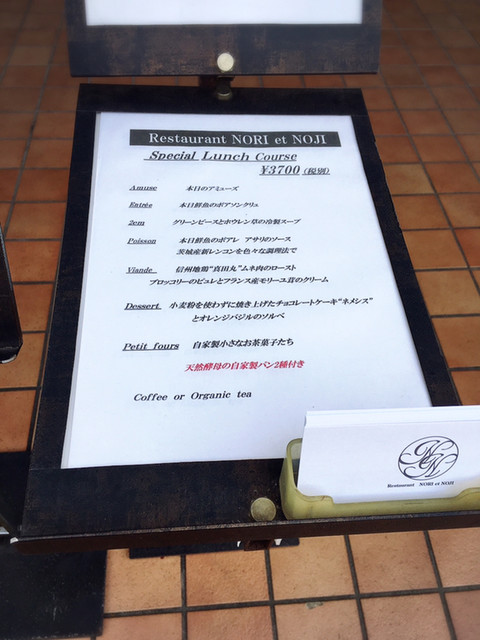 Restaurant NORI et NOJI
Special Lunch Course
¥3700 (税別)
Amuse 本日のアミューズ
Entrée 本日鮮魚のポアソンクリュ
2em グリーンピースとホウレン草の冷製スープ
Poisson 本日鮮魚のポアレ アサリのソース
茨城産新レンコンを色々な調理法で
Viande 信州地鶏“真田丸”ムネ肉のロースト
ブロッコリーのピュレとフランス産モリーユ茸のクリーム
Dessert 小麦粉を使わずに焼き上げたチョコレートケーキ“ネメシス”
とオレンジバジルのソルベ
Petit fours 自家製小さなお茶菓子たち
天然酵母の自家製パン2種付き
Coffee or Organic tea
Restaurant NORI et NOJI